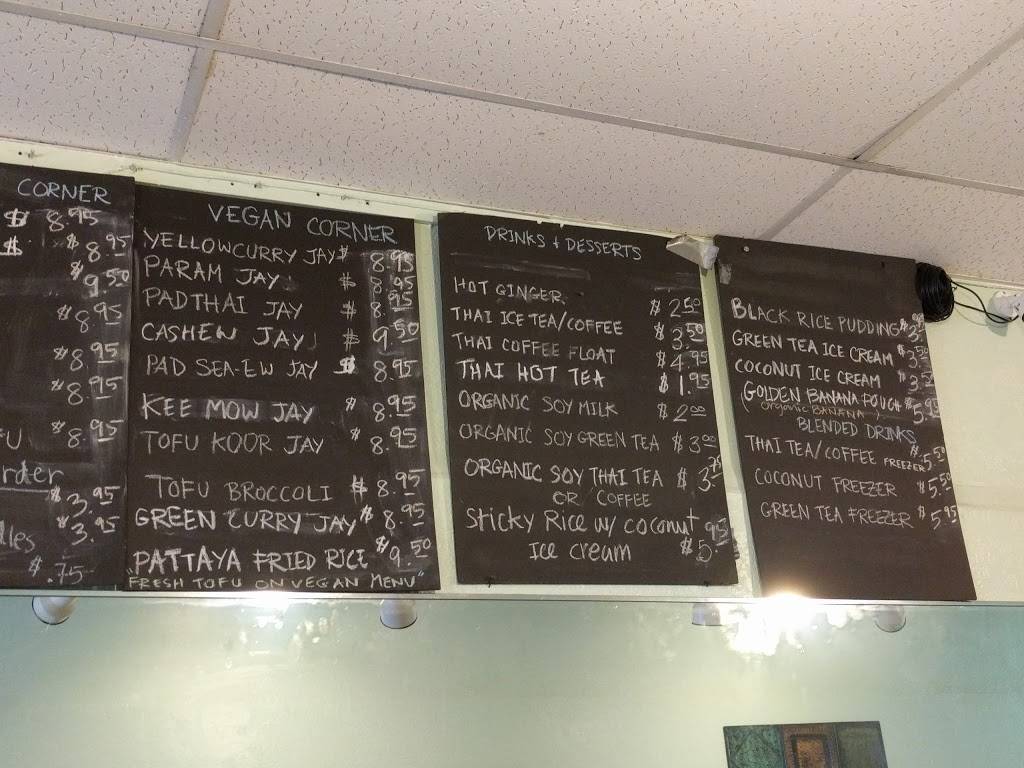 CORNER
$ 8.95
$ $ 8.95
$ 9.50
$ 8.95
$ 8.95
$ 8.95
$ 8.95
rder
$ 3.95
lles $ 3.95
$ .75
VEGAN CORNER
YELLOWCURRY JAY $ 8.95
PARAM JAY $ 8.95
PADTHAI JAY $ 8.95
CASHEW JAY $ 9.50
PAD SEA-EW JAY $ 8.95
KEE MOW JAY $ 8.95
TOFU KOOR JAY $ 8.95
TOFU BROCCOLI $ 8.95
GREEN CURRY JAY $ 8.95
PATTAYA FRIED RICE $ 9.50
FRESH TOFU ON VEGAN MENU"
DRINKS + DESSERTS
HOT GINGER $ 2.50
THAI ICE TEA/COFFEE $ 3.50
THAI COFFEE FLOAT $ 4.95
THAI HOT TEA $ 1.95
ORGANIC SOY MILK $ 2.00
ORGANIC SOY GREEN TEA $ 3.00
ORGANIC SOY THAI TEA $ 3.75
OR COFFEE
Sticky Rice w/ coconut
Ice cream $ 5.95
BLACK RICE PUDDING
GREEN TEA ICE CREAM
COCONUT ICE CREAM
(GOLDEN BANANA POUCH $ 5.95
organic BANANA)
BLENDED DRINKS
THAI TEA/COFFEE FREEZER $ 5.50
COCONUT FREEZER $ 5.50
GREEN TEA FREEZER $ 5.95